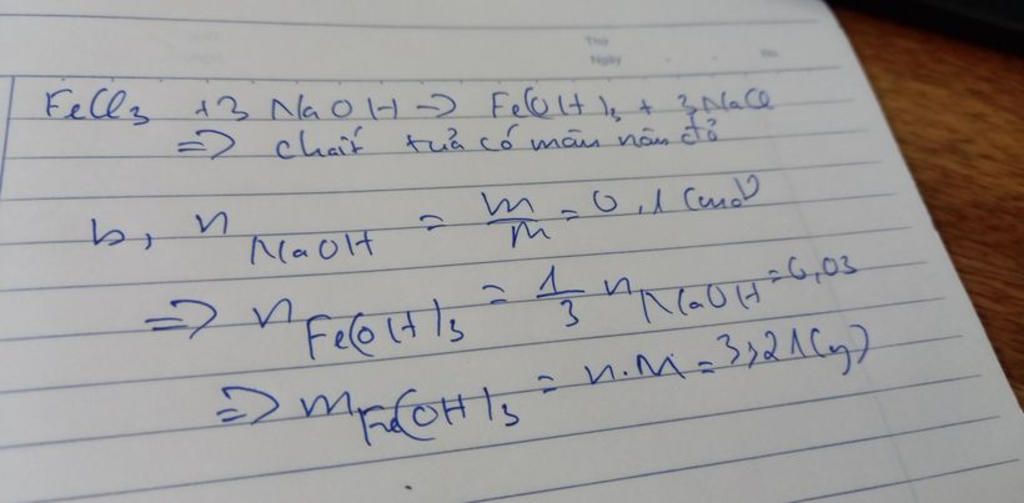 Thứ
Ngày No
FeCl₃ + 3 NaOH → Fe(OH)₃ + 3NaCl
=> chất tủa có màu nâu đỏ
b, n NaOH = m/m = 0,1 (mol)
=> n Fe(OH)₃ = 1/3 n NaOH = 0,03
=> m Fe(OH)₃ = n.M = 3,21(g)